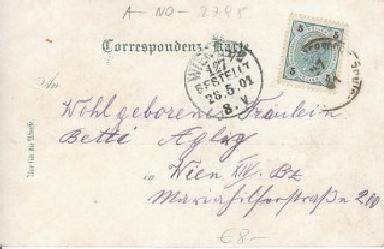 A-NO-2798
Correspondenz-Karte
WIEN
127
BESTELLT
26.5.01
8.V
5 5
An
Wohlgeborene Fräulein
Betti
in Wien XIV. Bz
Mariahilferstraße 200
Nur für die Adresse
€8-